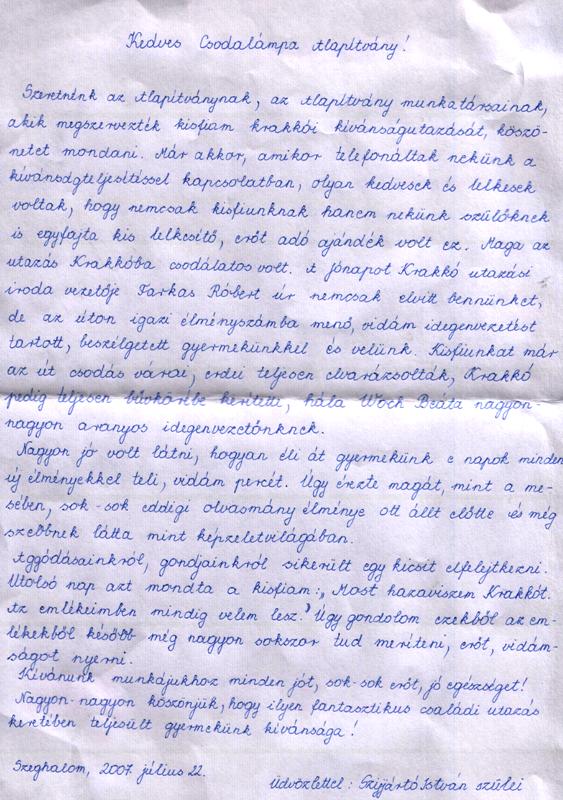 Kedves Csodalámpa Alapítvány!
Szeretnénk az Alapítványnak, az Alapítvány munkatársainak,
akik megszervezték kisfiam krakkói kívánságutazását, köszö-
netet mondani. Már akkor, amikor telefonáltak nekünk a
kívánságteljesítéssel kapcsolatban, olyan kedvesek és lelkesek
voltak, hogy nemcsak kisfiunknak hanem nekünk szülőknek
is egyfajta kis lelkesítő, erőt adó ajándék volt ez. Maga az
utazás Krakkóba csodálatos volt. A Jónapot Krakkó utazási
iroda vezetője Farkas Róbert úr nemcsak elvitt bennünket,
de az úton igazi élményszámba menő, vidám idegenvezetést
tartott, beszélgetett gyermekünkkel és velünk. Kisfiunkat már
az út csodás várai, erdei teljesen elvarázsolták, Krakkó
pedig teljesen bűvkörébe kerítette, hála Woch Beáta nagyon-
nagyon aranyos idegenvezetőnknek.
Nagyon jó volt látni, hogyan éli át gyermekünk e napok minden
új élményekkel teli, vidám percét. Úgy érezte magát, mint a me-
sében, sok-sok eddigi olvasmány élménye ott állt előtte és még
szebbnek látta mint képzeletvilágában.
Aggódásainkról, gondjainkról sikerült egy kicsit elfelejtkezni.
Utolsó nap azt mondta a kisfiam: „Most hazaviszem Krakkót.
Az emlékeimben mindig velem lesz." Úgy gondolom ezekből az em-
lékekből később még nagyon sokszor tud meríteni, erőt, vidám-
ságot nyerni.
Kívánunk munkájukhoz minden jót, sok-sok erőt, jó egészséget!
Nagyon-nagyon köszönjük, hogy ilyen fantasztikus családi utazás
keretében teljesült gyermekünk kívánsága!
Szeghalom, 2007. július 22.
Üdvözlettel: Szijjártó István szülei